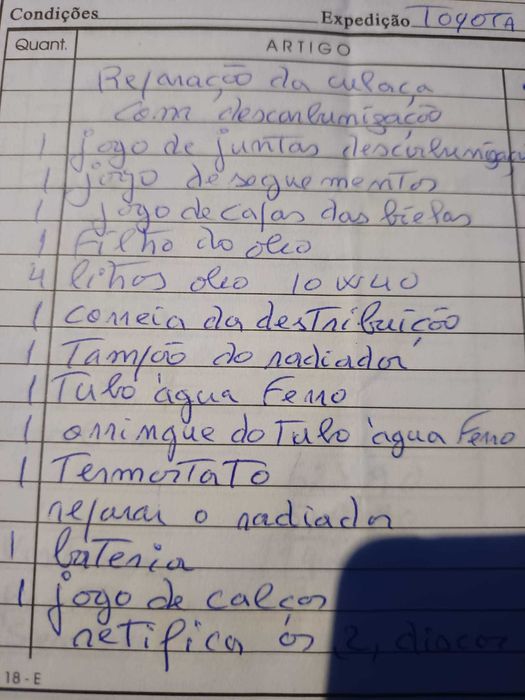 Condições Expedição TOYOTA
Quant. ARTIGO
Reparação da culaça
com descarbunização
1 jogo de juntas descarbunização
1 jogo de soguementos
1 jogo de capas das bielas
1 Filtro do oleo
4 litros oleo 10W40
1 correia da destribuição
1 Tampão do radiador
1 Tubo água Ferro
1 orringue do Tubo água Ferro
1 TermosTaTo
reparar o radiador
1 baTeria
1 jogo de calços
retifica ós 2, discos
18 - E